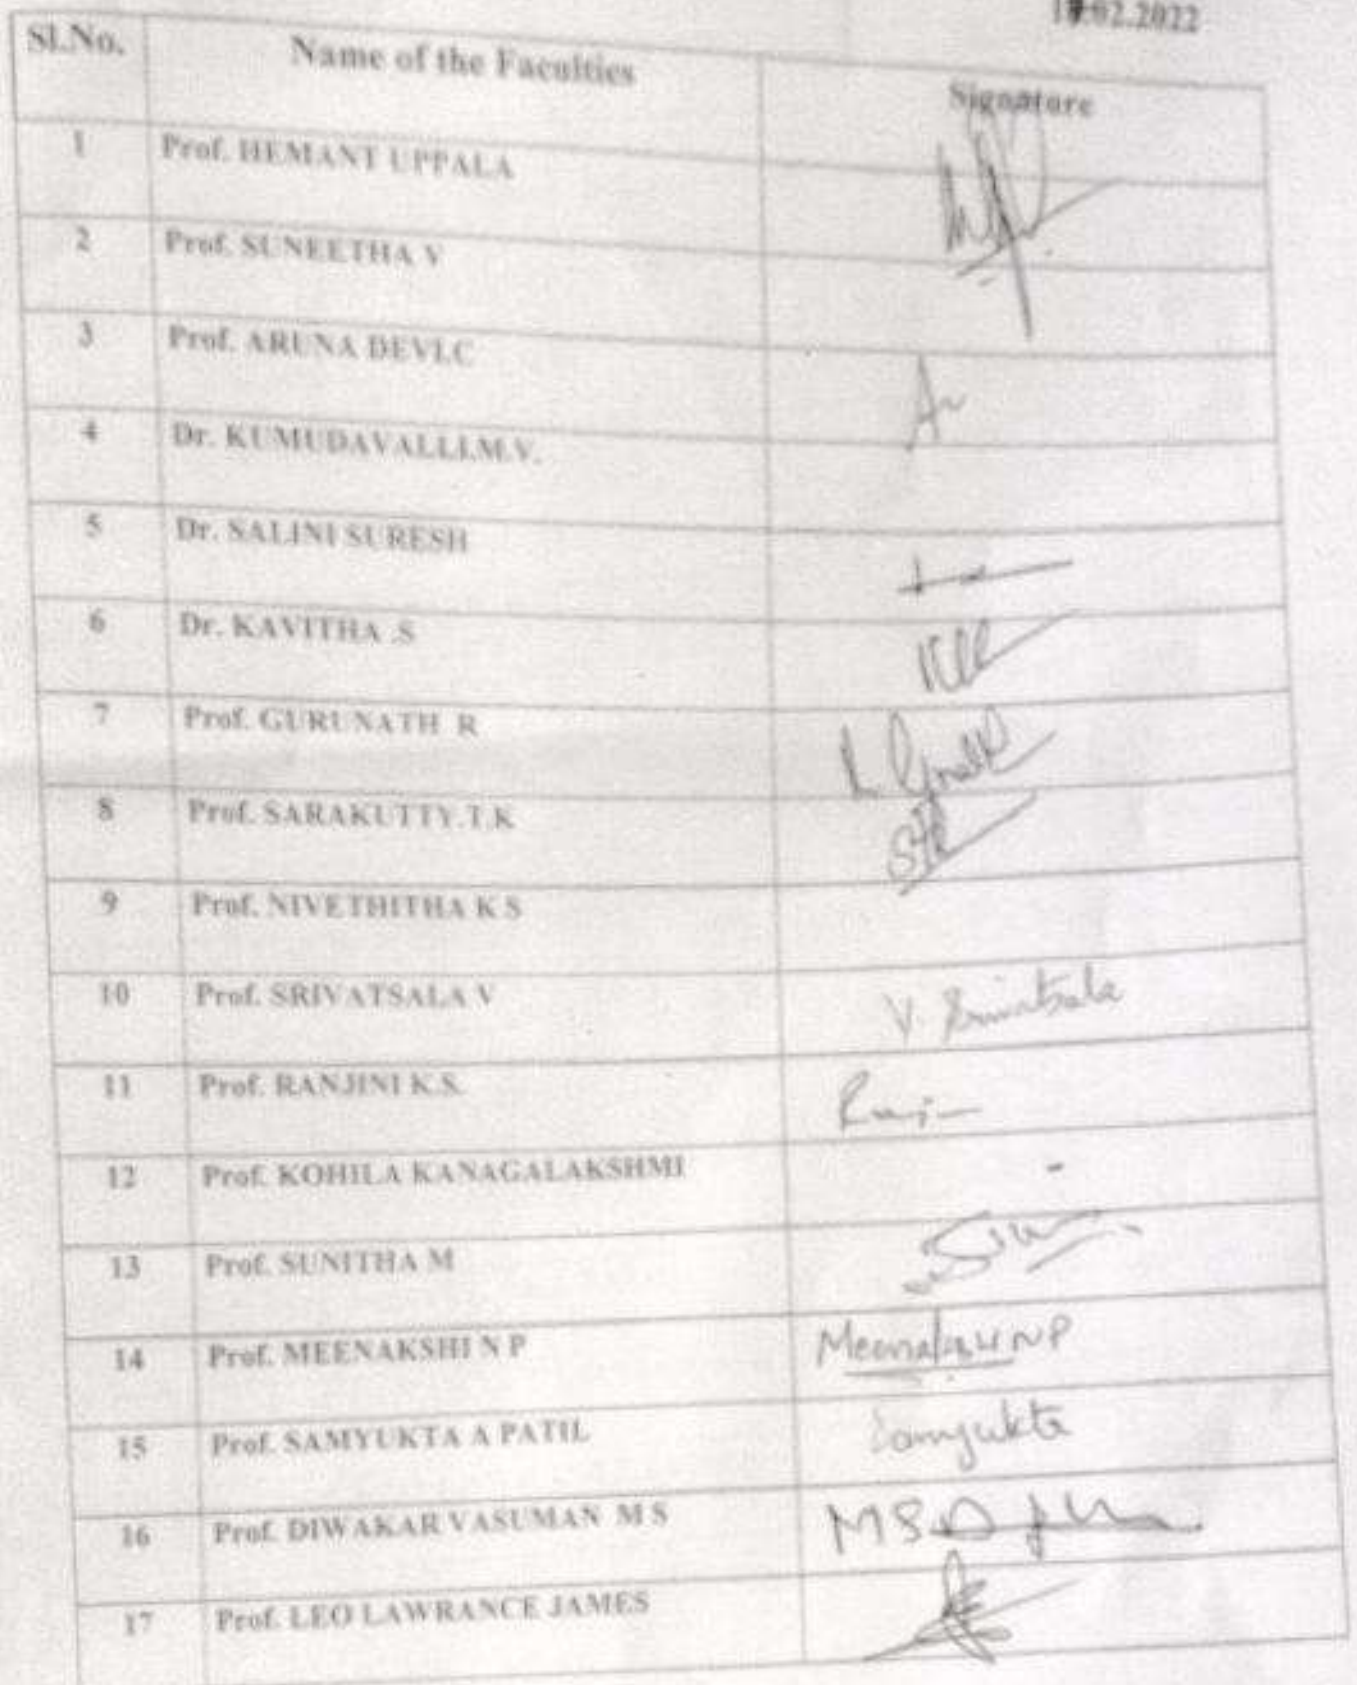 Sl.No. Name of the Faculties Signature
1 Prof. HEMANT UPPALA
2 Prof. SUNEETHA V
3 Prof. ARUNA DEVI.C
4 Dr. KUMUDAVALLI.M.V.
5 Dr. SALINI SURESH
6 Dr. KAVITHA .S
7 Prof. GURUNATH R
8 Prof. SARAKUTTY.T.K
9 Prof. NIVETHITHA K S
10 Prof. SRIVATSALA V V. Srivatsala
11 Prof. RANJINI K.S.
12 Prof. KOHILA KANAGALAKSHMI -
13 Prof. SUNITHA M
14 Prof. MEENAKSHI N P Meenakshi NP
15 Prof. SAMYUKTA A PATIL Samyukta
16 Prof. DIWAKAR VASUMAN M S
17 Prof. LEO LAWRANCE JAMES